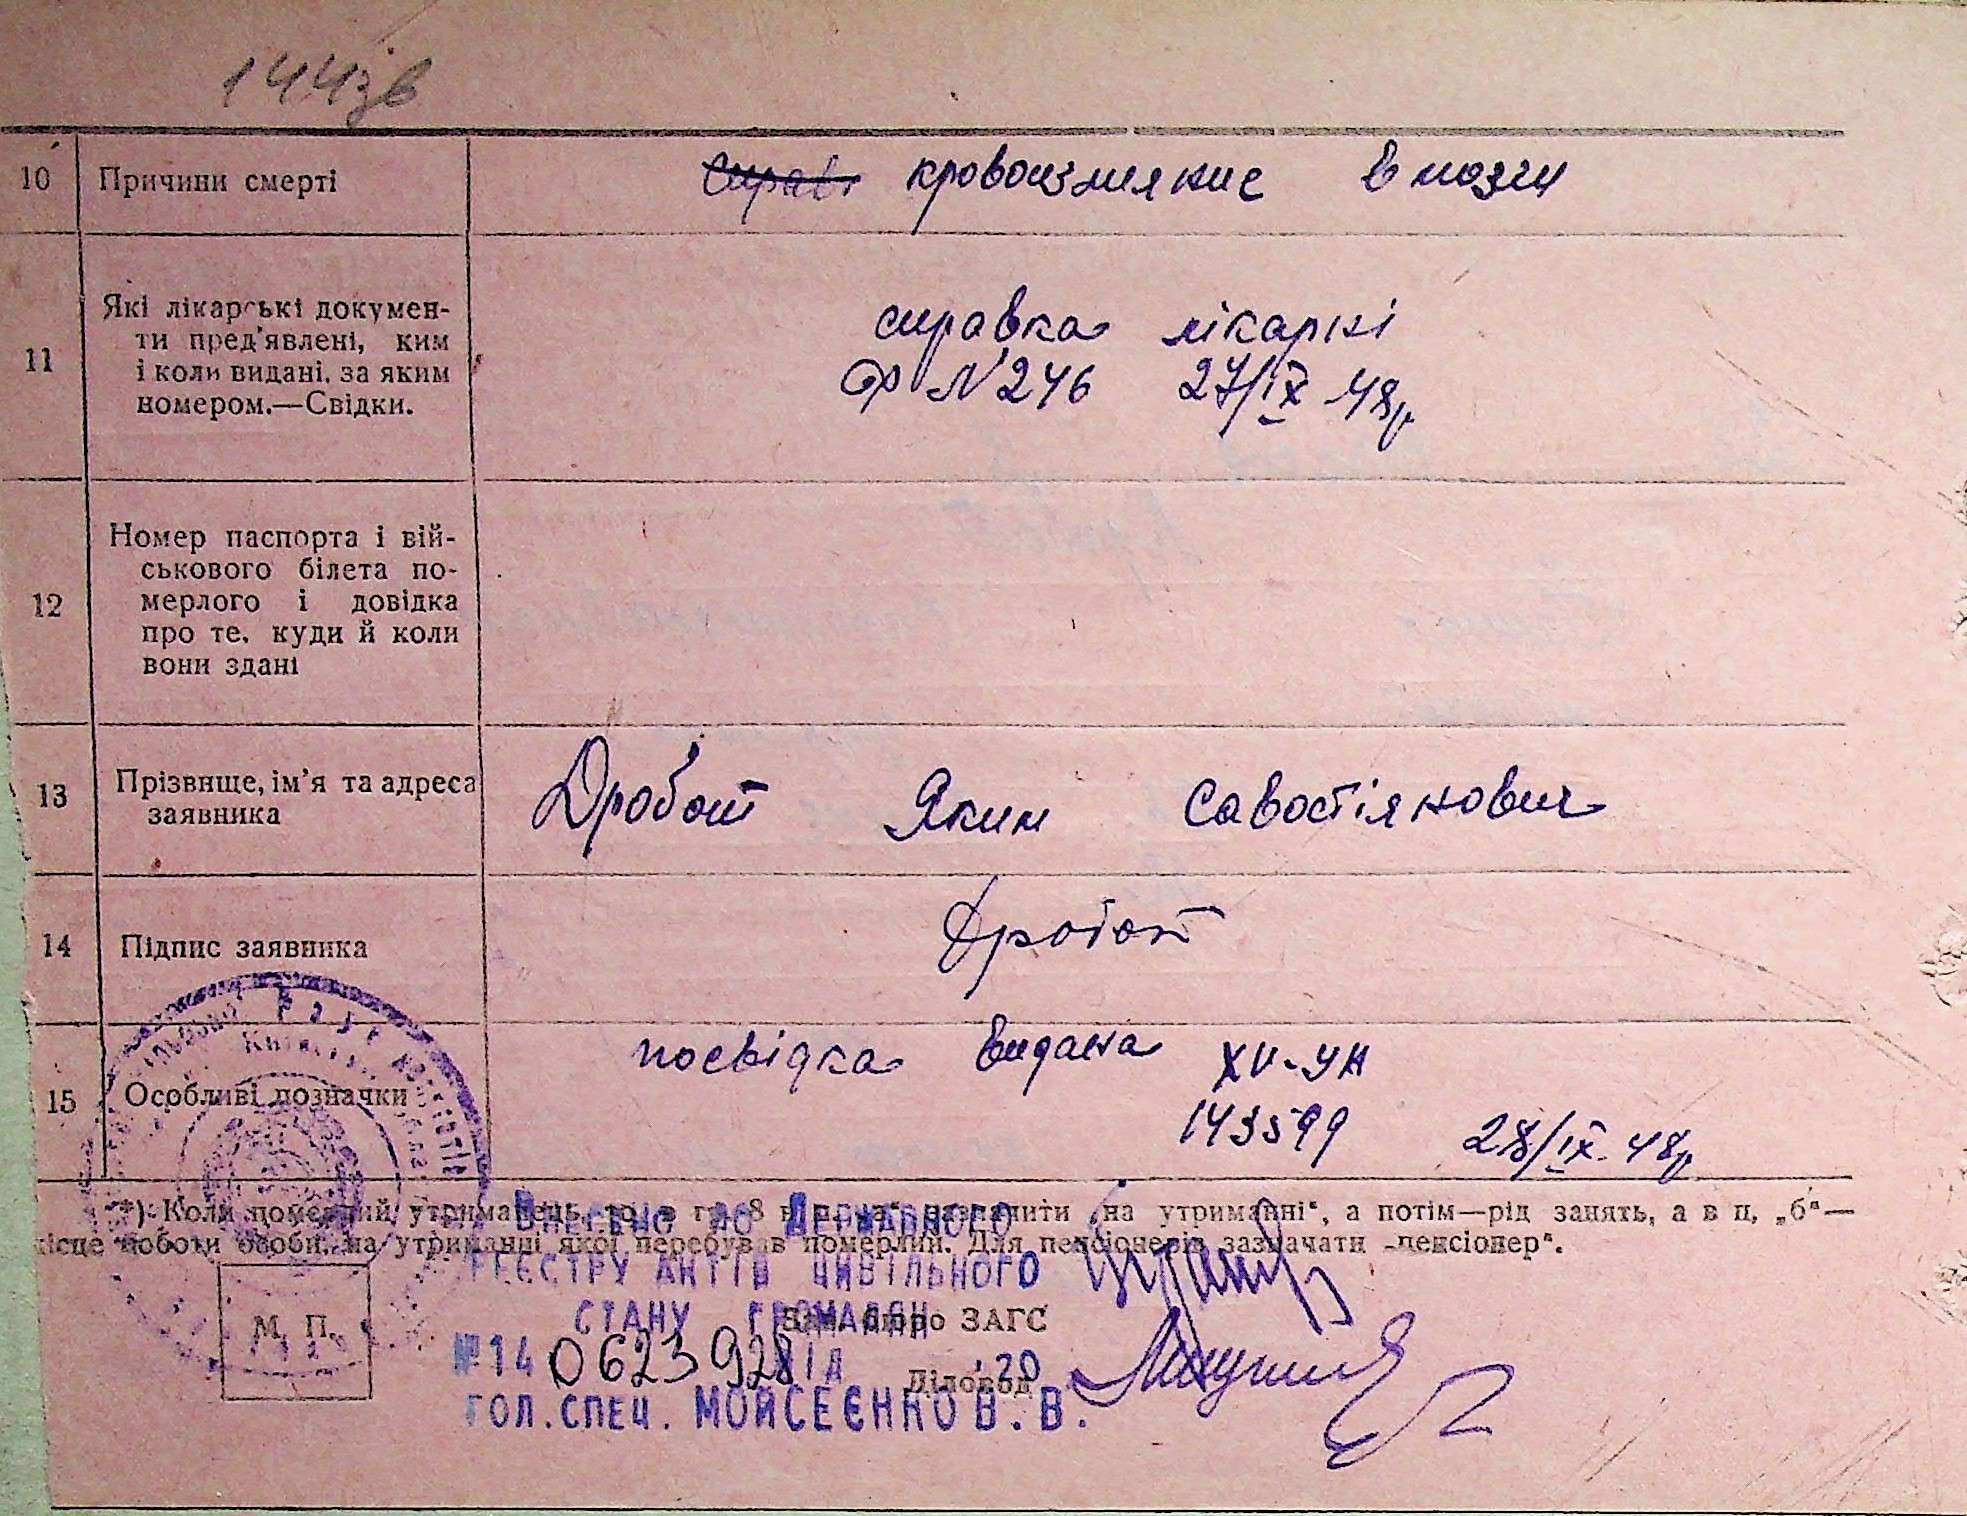 144зв
10 Причини смерті справ кровоизлияние в мозги
11 Які лікарські докумен-
ти пред'явлені, ким
і коли видані, за яким
номером.—Свідки.
справка лікарні
Ф N 246 27/IX 48р
12 Номер паспорта і вій-
ськового білета по-
мерлого і довідка
про те, куди й коли
вони здані
13 Прізвище, ім'я та адреса
заявника
Дробот Яким Савостіянович
14 Підпис заявника Дробот
15 Особливі позначки
посвідка видана XV-УН
143599 28/IX 48р
*) Коли померлий утриманець, то в гр. 8 н. п. „а“ зазначити „на утриманні“, а потім—рід занять, а в п. „б“—
місце роботи особи, на утриманні якої перебував померлий. Для пенсіонерів зазначати „пенсіонер“.
ВНЕСЕНО ДО ДЕРЖАВНОГО
РЕЄСТРУ АКТІВ ЦИВІЛЬНОГО
СТАНУ ГРОМАДЯН
Зав. бюро ЗАГС
М. П.
№ 14 0623928 ВІД 20
Діловод
ГОЛ. СПЕЦ. МОЙСЕЄНКО В. В.